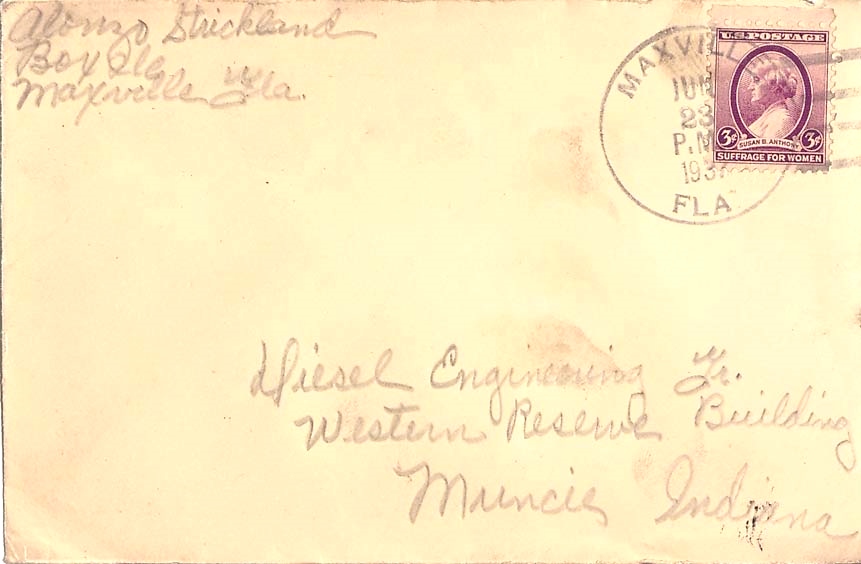 Alonzo Strickland
Box
Maxville Fla.
MAXVILLE
JUN
23
P.M.
193
FLA
U.S. POSTAGE
3¢ SUSAN B. ANTHONY 3¢
SUFFRAGE FOR WOMEN
Diesel Engineering
Western Reserve Building
Muncie Indiana